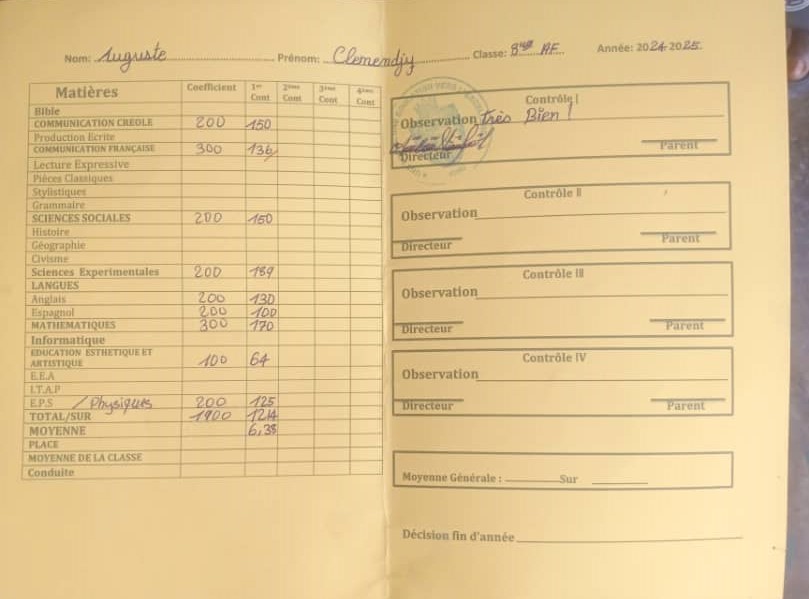 Nom: Auguste Prénom: Clemendjy Classe: 8ème AF Année: 2024-2025
Matières Coefficient 1er Cont 2ème Cont 3ème Cont 4ème Cont
Bible
COMMUNICATION CREOLE 200 150
Production Ecrite
COMMUNICATION FRANÇAISE 300 136
Lecture Expressive
Pièces Classiques
Stylistiques
Grammaire
SCIENCES SOCIALES 200 150
Histoire
Géographie
Civisme
Sciences Experimentales 200 189
LANGUES
Anglais 200 130
Espagnol 200 100
MATHEMATIQUES 300 170
Informatique
EDUCATION ESTHETIQUE ET
ARTISTIQUE 100 64
E.E.A
I.T.A.P
E.P.S / Physiques 200 125
TOTAL/SUR 1900 1214
MOYENNE 6,38
PLACE
MOYENNE DE LA CLASSE
Conduite
Contrôle I
Observation Très Bien !
Directeur Parent
Contrôle II
Observation
Directeur Parent
Contrôle III
Observation
Directeur Parent
Contrôle IV
Observation
Directeur Parent
Moyenne Générale : Sur
Décision fin d'année